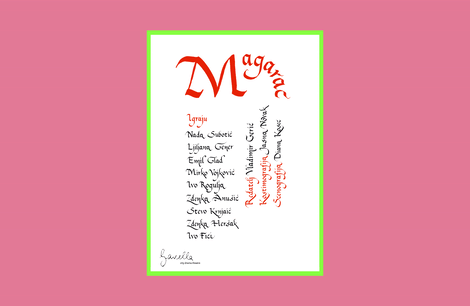 Magarac
Igraju
Nada Subotić
Ljiljana Gener
Emil Glad
Mirko Vojković
Ivo Rogulja
Zdenka Anušić
Stevo Krnjaić
Zdenka Heršak
Ivo Fici
Redatelj Vladimir Gerić
Kostimografija Jasna Novak
Scenografija Diana Kosec